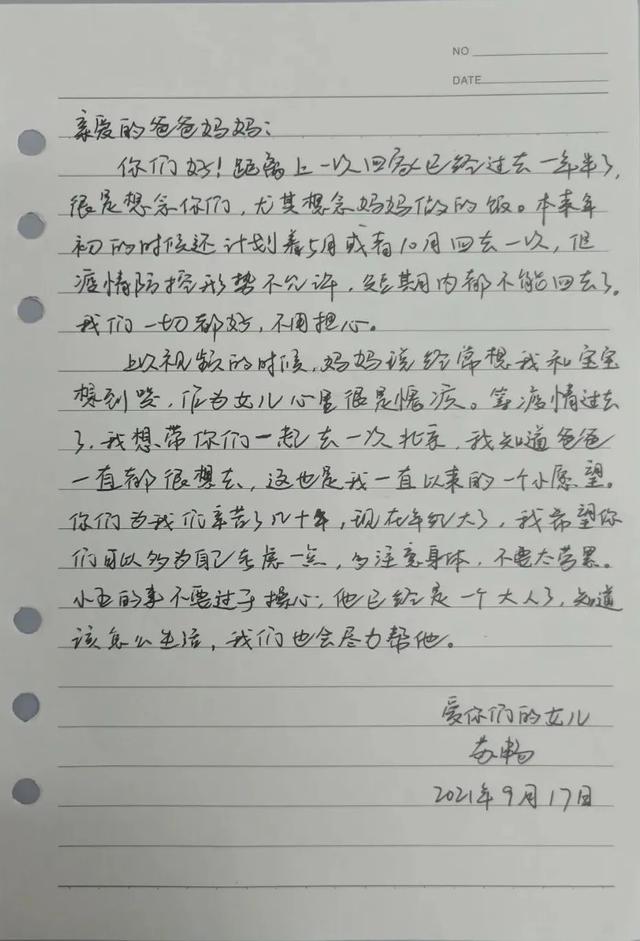 NO
DATE
亲爱的爸爸妈妈:
你们好!距离上一次回家已经过去一年半了,
很是想念你们,尤其想念妈妈做的饭。本来年
初的时候还计划着5月或者10月回去一次,但
疫情防控形势不允许,短期内都不能回去了。
我们一切都好,不用担心。
上次视频的时候,妈妈说经常想我和宝宝
想到哭,作为女儿心里很是愧疚。等疫情过去
了,我想带你们一起去一次北京,我知道爸爸
一直都很想去,这也是我一直以来的一个小愿望。
你们为我们辛苦了几十年,现在年纪大了,我希望你
们可以多为自己考虑一点,多注意身体,不要太劳累。
小亚的事不要过于操心,他已经是一个大人了,知道
该怎么生活,我们也会尽力帮他。
爱你们的女儿
苏畅
2021年9月17日